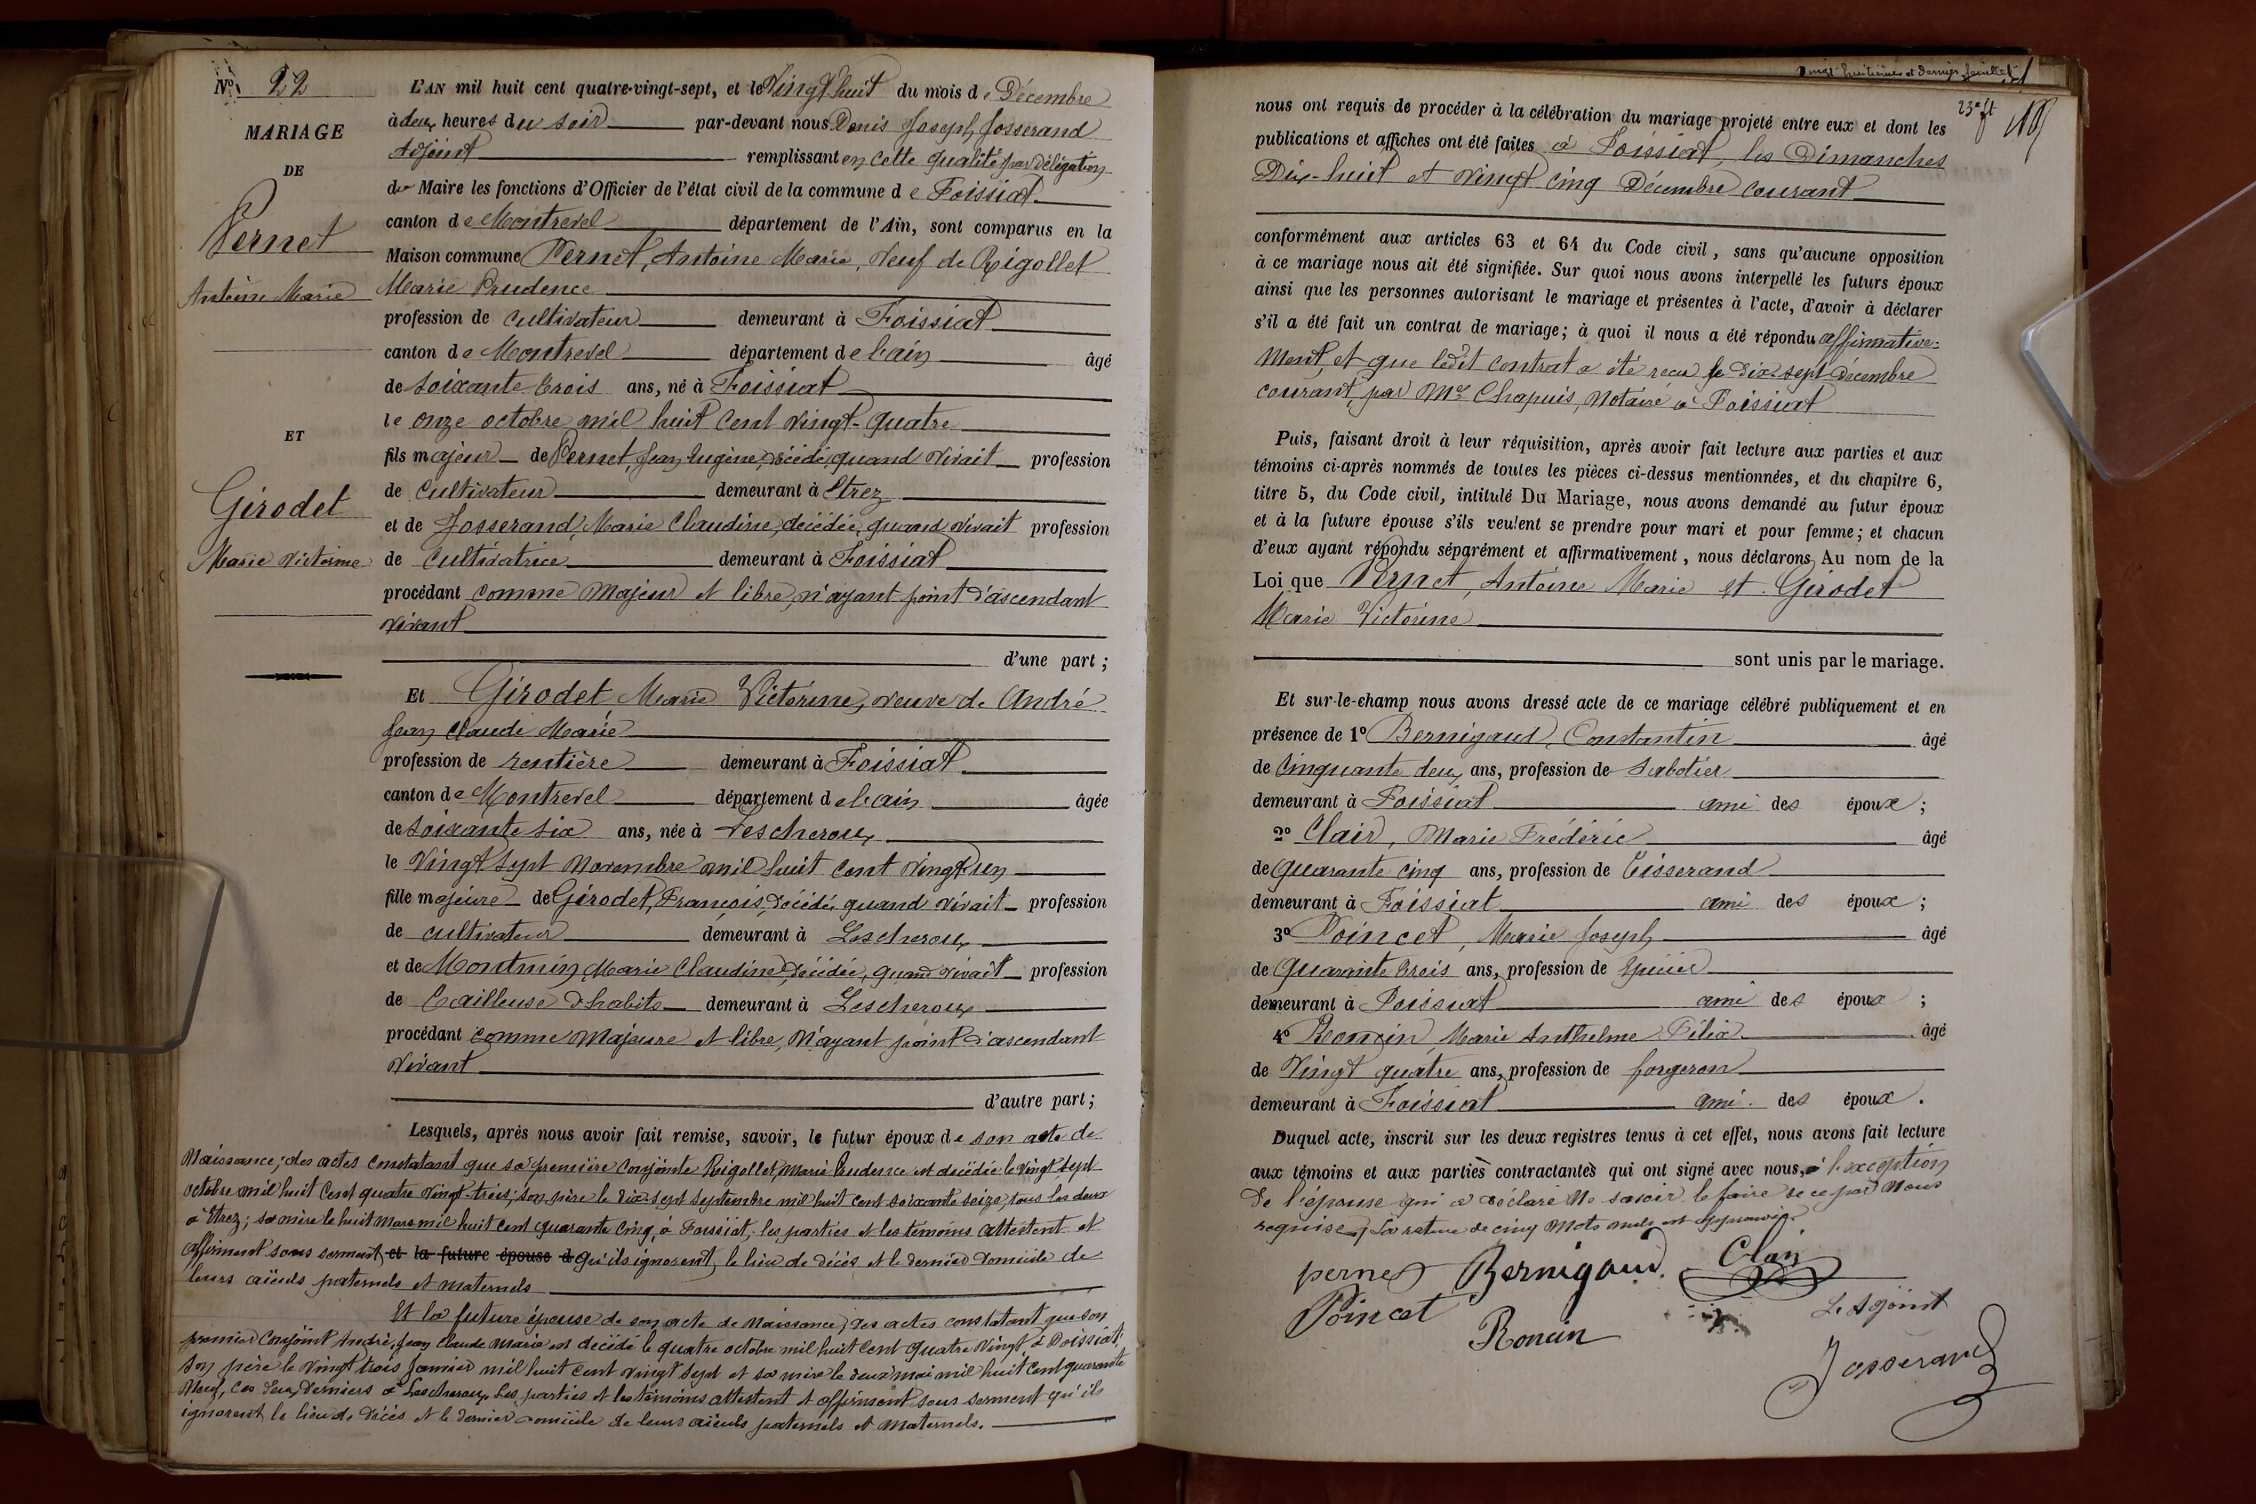 N° 22
MARIAGE
DE
Pernet
Antoine Marie
ET
Girodet
Marie Victorine
L'AN mil huit cent quatre-vingt-sept, et le Vingt huit du mois de Décembre
à deux heures du soir par-devant nous Denis Joseph Josserand
Adjoint remplissant en cette qualité par délégation
du Maire les fonctions d'Officier de l'état civil de la commune de Foissiat
canton de Montrevel département de l'Ain, sont comparus en la
Maison commune Pernet, Antoine Marie, Veuf de Rigollet
Marie Prudence
profession de cultivateur demeurant à Foissiat
canton de Montrevel département de l'ain âgé
de soixante trois ans, né à Foissiat
le onze octobre mil huit cent vingt-quatre
fils majeur de Pernet, Jean Eugène, décédé, quand vivait profession
de cultivateur demeurant à Etrez
et de Josserand, Marie Claudine, décédée, quand vivait profession
de cultivatrice demeurant à Foissiat
procédant comme majeur et libre, n'ayant point d'ascendant
vivant
d'une part ;
Et Girodet Marie Victorine, veuve de André
Jean Claude Marie
profession de rentière demeurant à Foissiat
canton de Montrevel département de l'ain âgée
de soixante six ans, née à Lescheroux
le vingt sept Novembre mil huit cent vingt un
fille majeure de Girodet, François, décédé, quand vivait profession
de cultivateur demeurant à Lescheroux
et de Montmin Marie Claudine, décédée, quand vivait profession
de tailleuse d'habits demeurant à Lescheroux
procédant comme majeure et libre, n'ayant point d'ascendant
vivant
d'autre part ;
Lesquels, après nous avoir fait remise, savoir, le futur époux de son acte de
Naissance ; des actes constatant que sa première conjointe Rigollet, Marie Prudence est décédée le vingt sept
octobre mil huit cent quatre vingt-trois ; son père le dix-sept septembre mil huit cent soixante seize, tous les deux
à Etrez ; sa mère le huit Mars mil huit cent quarante cinq, à Foissiat, les parties et les témoins attestent et
affirment sous serment et la future épouse d qu'ils ignorent, le lieu de décès et le dernier domicile de
leurs aïeuls paternels et maternels
Et la future épouse de son acte de Naissance, des actes constatant que son
premier conjoint André, Jean Claude Marie est décédé le quatre octobre mil huit cent quatre vingt à Foissiat ;
son père le vingt trois Janvier mil huit cent vingt sept et sa mère le deux mai mil huit cent quarante
Neuf, ces deux derniers à Lescheroux. Les parties et les témoins attestent et affirment sous serment qu'ils
ignorent le lieu de décès et le dernier domicile de leurs aïeuls paternels et maternels.
Vingt huitième et dernier feuillet
23e ft
nous ont requis de procéder à la célébration du mariage projeté entre eux et dont les
publications et affiches ont été faites à Foissiat, les Dimanches
Dix-huit et vingt cinq Décembre courant
conformément aux articles 63 et 64 du Code civil, sans qu'aucune opposition
à ce mariage nous ait été signifiée. Sur quoi nous avons interpellé les futurs époux
ainsi que les personnes autorisant le mariage et présentes à l'acte, d'avoir à déclarer
s'il a été fait un contrat de mariage ; à quoi il nous a été répondu affirmative-
ment, et que ledit contrat a été reçu le dix sept Décembre
courant, par Me Chapuis, Notaire à Foissiat
Puis, faisant droit à leur réquisition, après avoir fait lecture aux parties et aux
témoins ci-après nommés de toutes les pièces ci-dessus mentionnées, et du chapitre 6,
titre 5, du Code civil, intitulé Du Mariage, nous avons demandé au futur époux
et à la future épouse s'ils veulent se prendre pour mari et pour femme ; et chacun
d'eux ayant répondu séparément et affirmativement, nous déclarons, Au nom de la
Loi que Pernet, Antoine Marie et Girodet
Marie Victorine
sont unis par le mariage.
Et sur-le-champ nous avons dressé acte de ce mariage célébré publiquement et en
présence de 1° Bernigaud, Constantin âgé
de Cinquante deux ans, profession de Sabotier
demeurant à Foissiat ami des époux ;
2° Clair, Marie Frédéric âgé
de quarante cinq ans, profession de Tisserand
demeurant à Foissiat ami des époux ;
3° Poincet, Marie Joseph âgé
de Quarante trois ans, profession de Epicier
demeurant à Foissiat ami des époux ;
4° Roncin, Marie Anthelme Félix âgé
de Vingt quatre ans, profession de forgeron
demeurant à Foissiat ami des époux.
Duquel acte, inscrit sur les deux registres tenus à cet effet, nous avons fait lecture
aux témoins et aux parties contractantes qui ont signé avec nous, à l'exception
de l'épouse qui a déclaré ne savoir le faire de ce par nous
requise. La rature de cinq mots nuls est approuvée.
pernet Bernigaud Clair
Poincet L'adjoint
Roncin Josserand